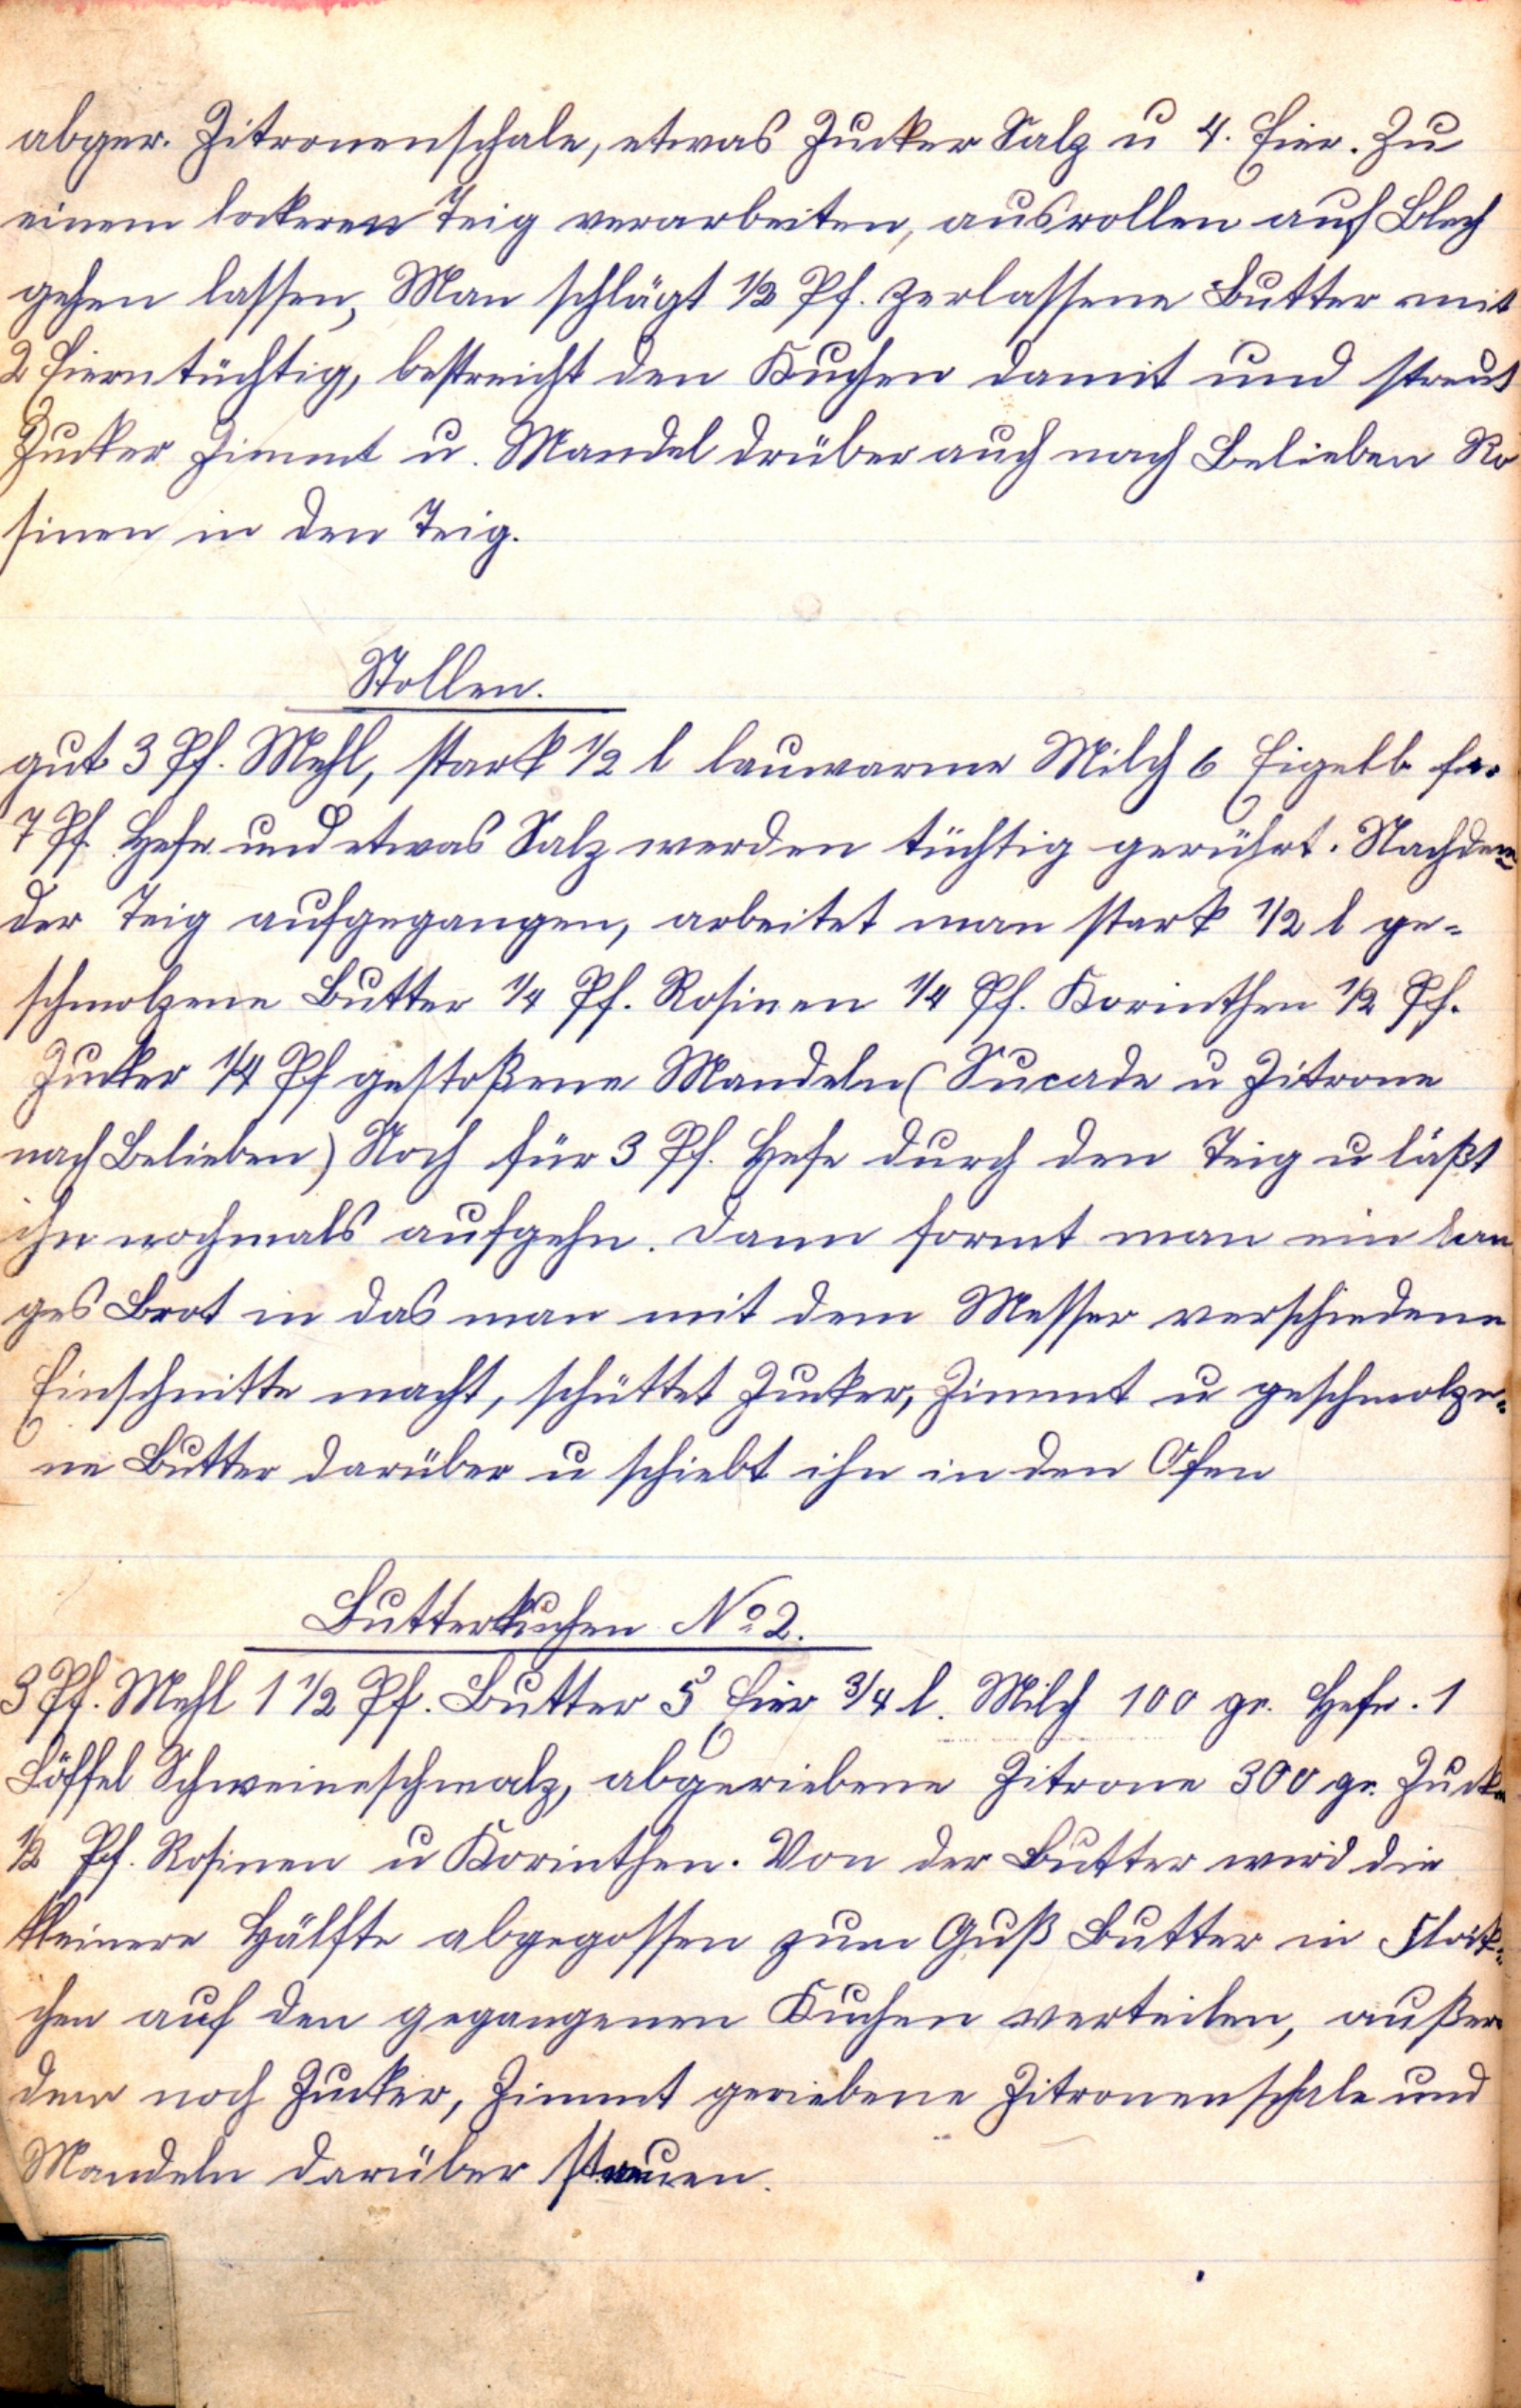 abger. Zitronenschale, etwas Zucker Salz u 4. Eier. Zu
einem lockeren Teig verarbeiten, ausrollen auf Blech
gehen lassen, Man schlägt 1/2 Pf. zerlassene Butter mit
2 Eiern tüchtig, bestreicht den Kuchen damit und streut
Zucker Zimmt u. Mandel drüber auch nach Belieben Ro
sinen in den Teig.
Stollen.
gut 3 Pf. Mehl, stark 1/2 l lauwarme Milch 6 Eigelb für
7 Pf. Hefe und etwas Salz werden tüchtig gerührt. Nachdem
der Teig aufgegangen, arbeitet man stark 1/2 l ge-
schmolzene Butter 1/4 Pf. Rosinen 1/4 Pf. Korinthen 1/2 Pf.
Zucker 1/4 Pf gestoßene Mandeln (Sucade u Zitrone
nach Belieben) Noch für 3 Pf. Hefe durch den Teig u läßt
ihn nochmals aufgehn. Dann formt man ein lan
ges Brot in das man mit dem Messer verschiedene
Einschnitte macht, schüttet Zucker, Zimmt u geschmolze-
ne Butter darüber u schiebt ihn in den Ofen
Butterkuchen No 2.
3 Pf. Mehl 1 1/2 Pf. Butter 5 Eier 3/4 l. Milch 100 gr. Hefe. 1
Löffel Schweineschmalz, abgeriebene Zitrone 300 gr. Zucker
1/2 Pf. Rosinen u Korinthen. Von der Butter wird die
kleinere Hälfte abgegossen zum Guß Butter in
chen auf den gegangenen Kuchen verteilen, außer
dem noch Zucker, Zimmt geriebene Zitronenschale und
Mandeln darüber streuen.